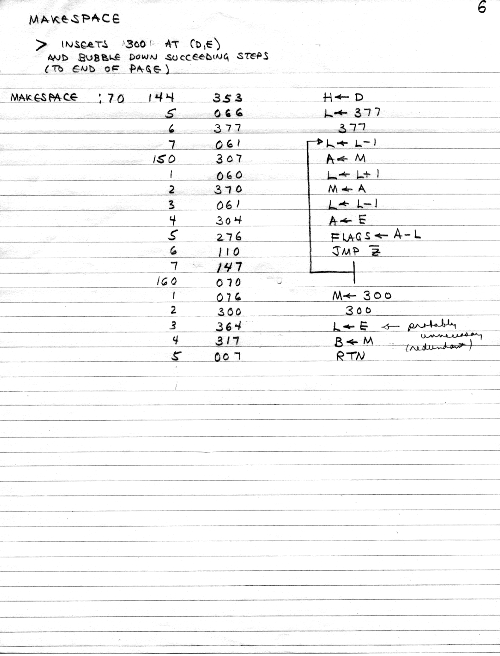 6
MAKESPACE
> INSERTS '300' AT (D,E)
AND BUBBLE DOWN SUCCEEDING STEPS
(TO END OF PAGE)
MAKESPACE :70 144 353 H←D
5 066 L←377
6 377 377
7 061 L←L-1
150 307 A←M
1 060 L←L+1
2 370 M←A
3 061 L←L-1
4 304 A←E
5 276 FLAGS←A-L
6 110 JMP Z̅
7 147
160 070
1 076 M←300
2 300 300
3 364 L←E ← probably
unnecessary
4 317 B←M (redundant)
5 007 RTN